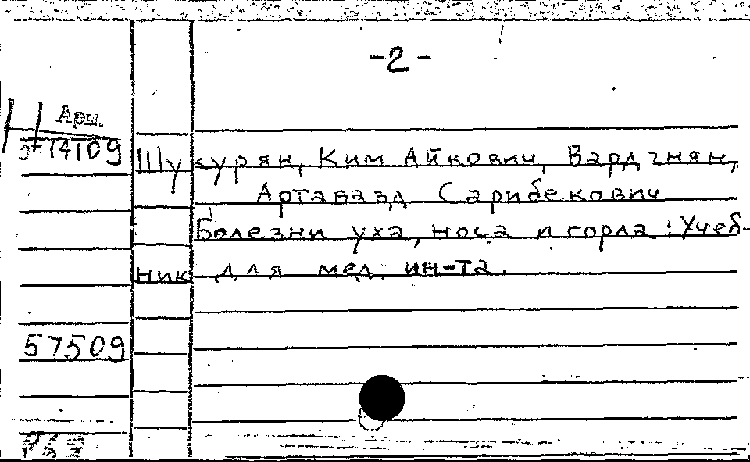 -2-
Арш.
Шукурян, Ким Айкович, Вардгнян,
Артавазд Сарибекович
Болезни уха, носа и горла : Учеб-
ник для мед. ин-та.
57509